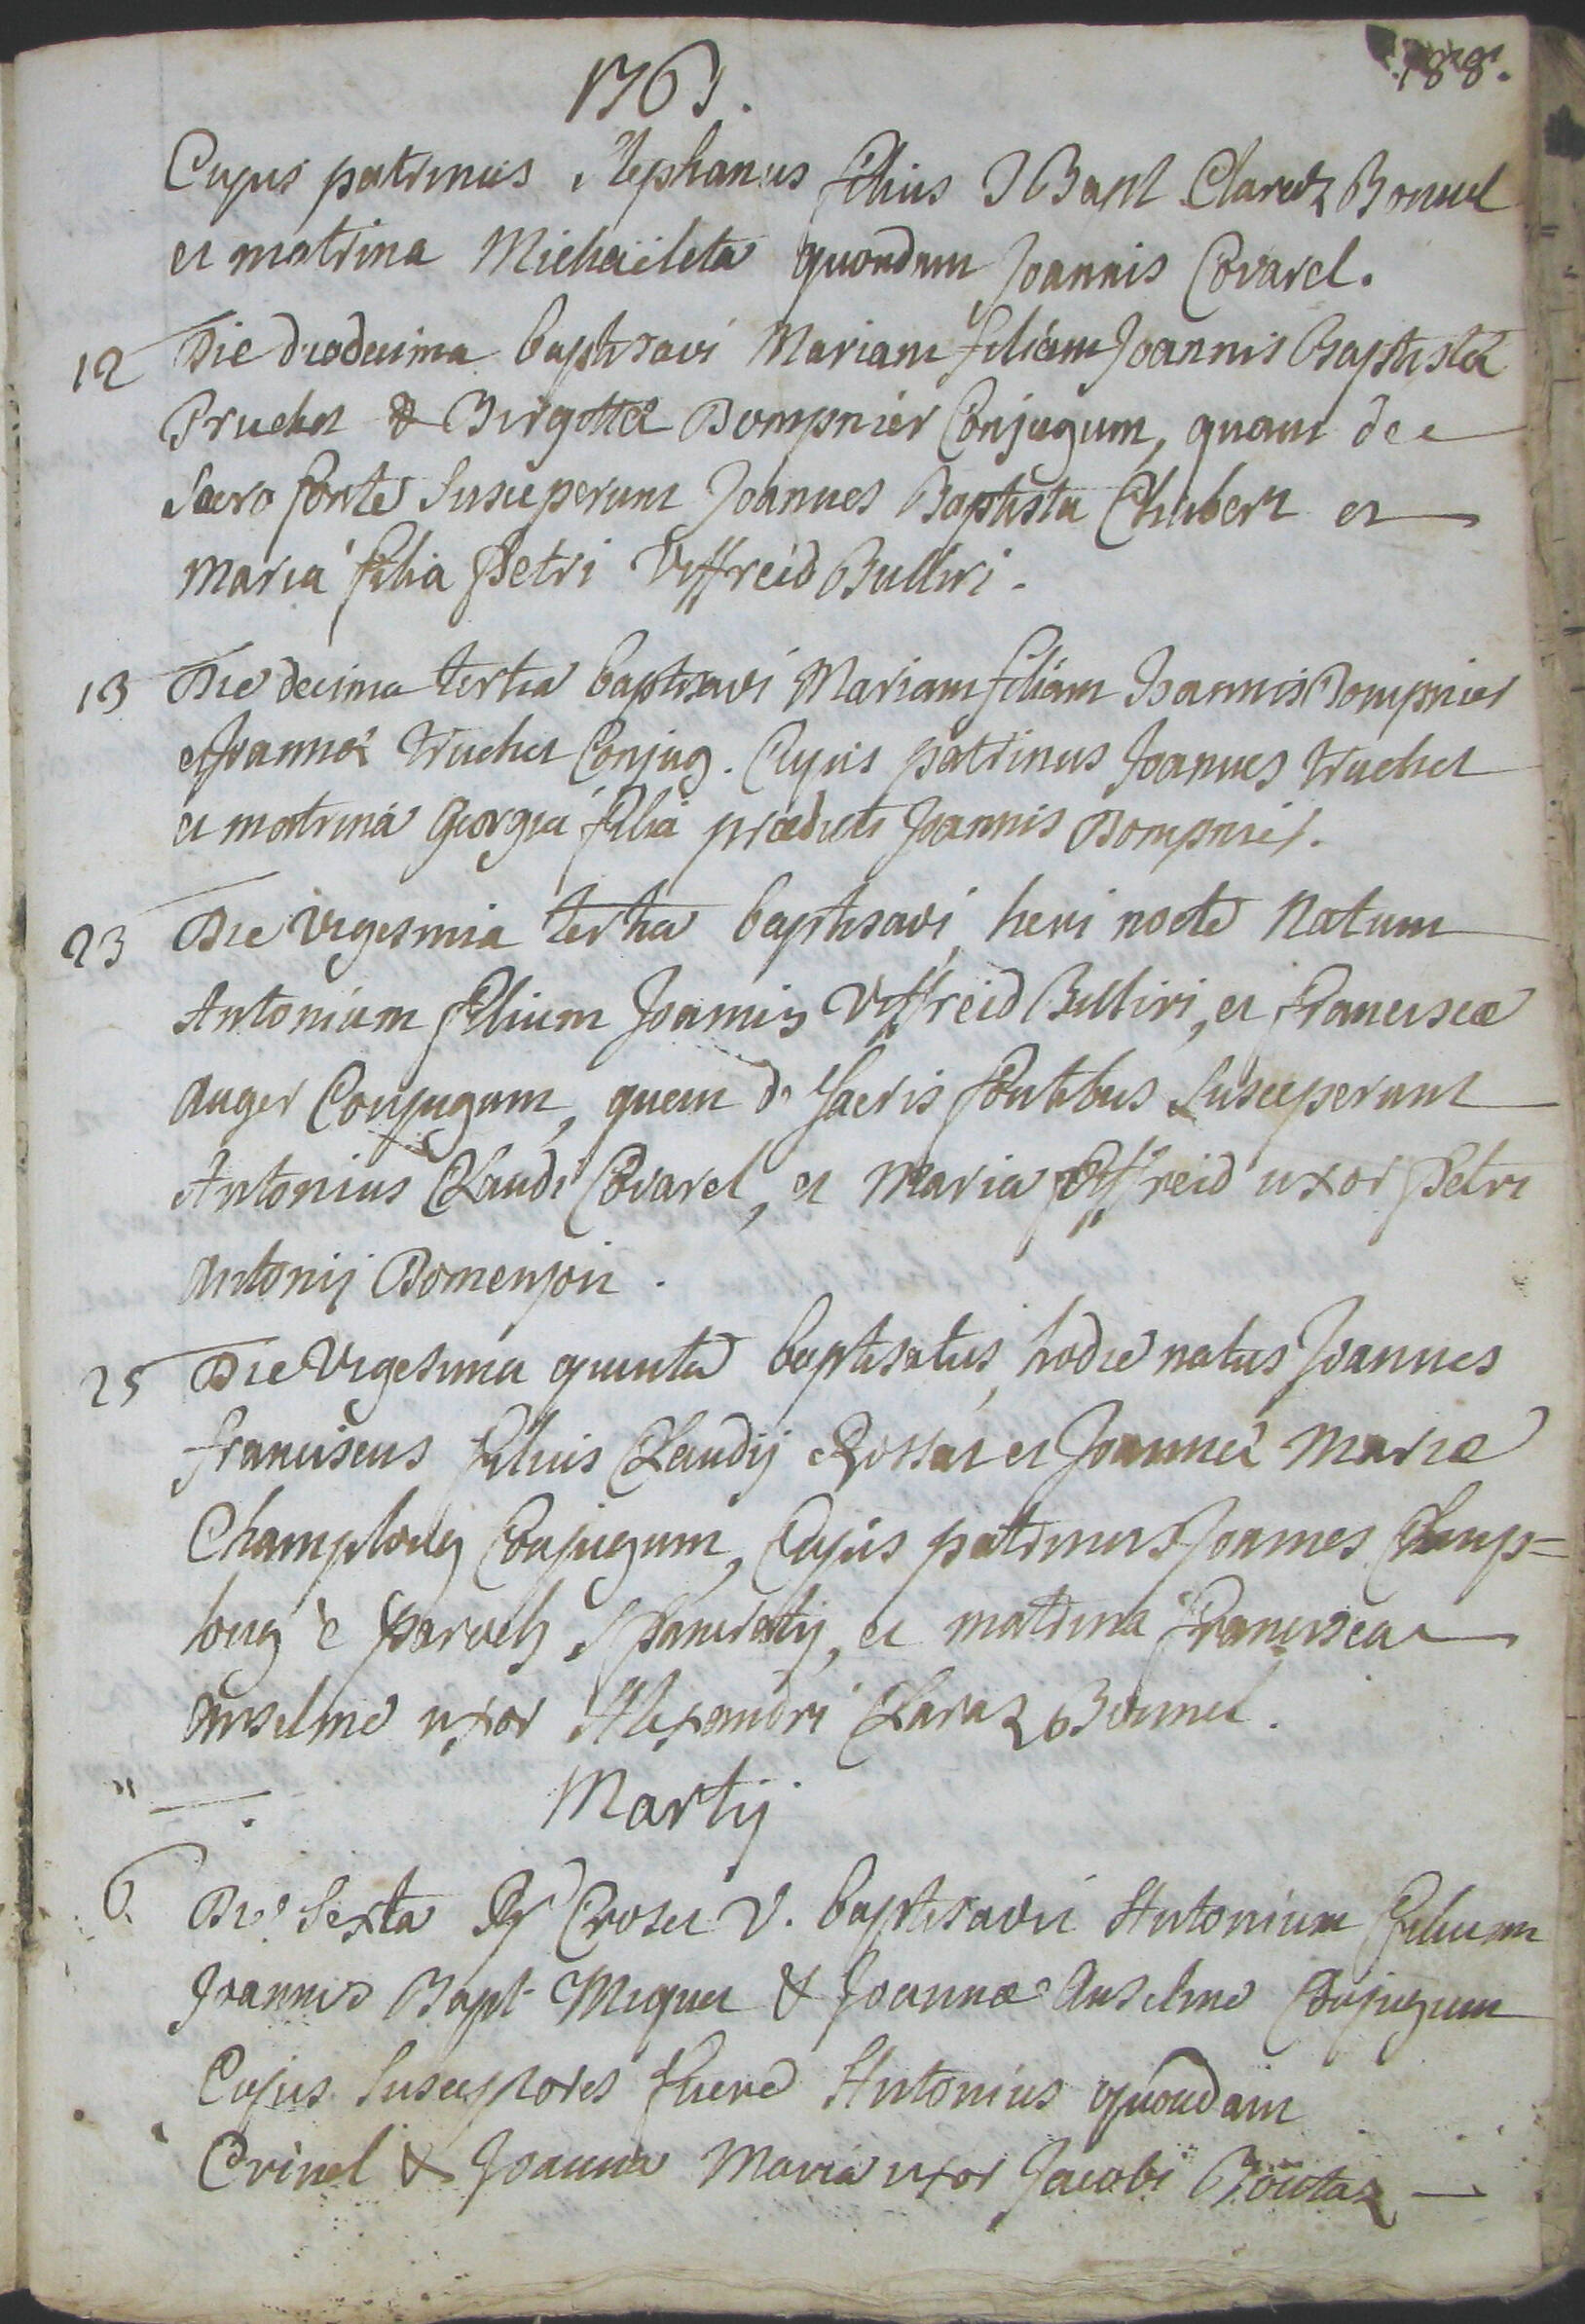 1763.
188.
Cujus patrinus Stephanus filius J Bapt Claraz Bonnel
et matrina Michaëleta quondam Joannis Covarel.
12 Die duodecima baptisavi Mariam filiam Joannis Baptistæ
Truchet & Birgittæ Dompnier Conjugum, quam de
Sacro fonte Susceperunt Joannes Baptista Chubert et
Maria filia Petri Viffreid Bulliri.
13 Die decima tertia baptisavi Mariam filiam Joannis Dompnier
et Joannæ Truchet Conjug. Cujus patrinus Joannes Truchet
et matrina Georgia filia prædicti Joannis Dompnier.
23 Die vigesima tertia baptisavi, heri nocte natum
Antonium filium Joannis Viffreid Bulliri, et Franciscæ
Auger Conjugum, quem de Sacris fontibus Susceperunt
Antonius Claudi Covarel, et Maria Viffreid uxor Petri
Antonij Domenjon.
25 Die Vigesima quinta baptisatus, hodie natus Joannes
Franciscus filius Claudij Rossat et Joannæ Mariæ
Champlong Conjugum, Cujus patrinus Joannes Champ=
long è paroch S Pancratij, et matrina Francisca
Anselme uxor Alexandri Claraz Bonnel.
Martij
6. Die Sexta Croset V. baptisavit Antonium filium
Joannis Bapt Miquet & Joannæ Anselme Conjugum
Cujus Susceptores fuere Antonius quondam
Crinel & Joanna Maria uxor Jacobi Boutaz